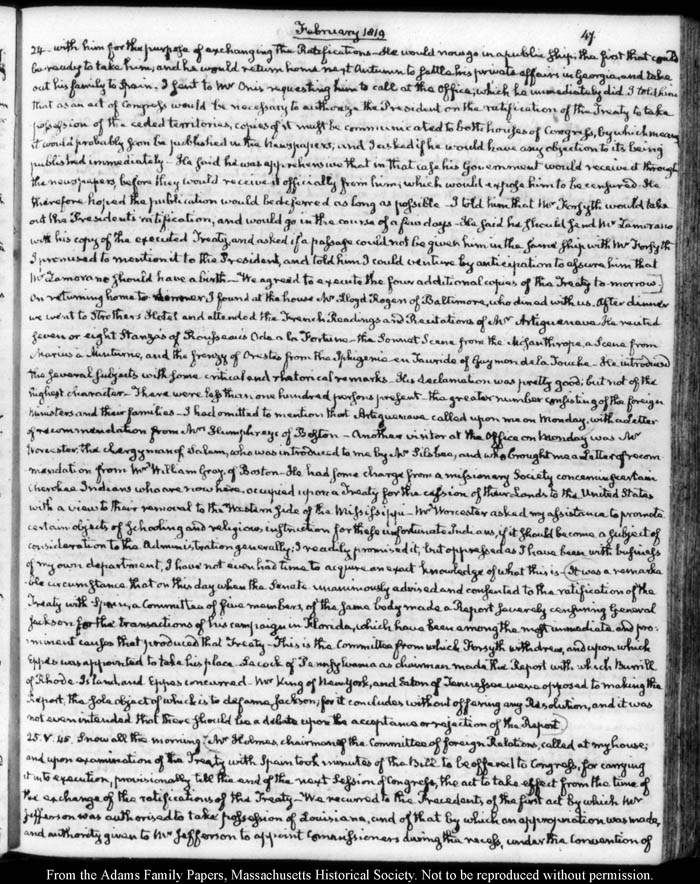 February 1819
47.
24. with him for the purpose of exchanging the Ratifications. He would now go in a public ship; the first that could
be ready to take him; and he would return home next Autumn to settle his private affairs in Georgia, and take
out his family to Spain. I sent to Mr Onis requesting him to call at the Office, which he immediately did. I told him
that as an act of Congress would be necessary to authorize the President on the ratification of the Treaty to take
possession of the ceded territories, copies of it must be communicated to both houses of Congress, by which means
it would probably soon be published in the Newspapers; and I asked if he would have any objection to its being
published immediately. He said he was apprehensive that in that case his Government would receive it through
the newspapers before they would receive it officially from him; which would expose him to be censured. He
therefore hoped the publication would be deferred as long as possible. I told him that Mr Forsyth would take
out the President's ratification, and would go in the course of a few days. He said he should send Mr Zamorano
with his copy of the executed Treaty, and asked if a passage could not be given him in the same ship with Mr Forsyth
I promised to mention it to the President, and told him I could venture by anticipation to assure him that
Mr Zamorano should have a birth. We agreed to execute the four additional copies of the Treaty to-morrow.
On returning home to dinner, I found at the house Mr Lloyd Rogers of Baltimore, who dined with us. After dinner
we went to Strothers Hotel and attended the French Readings and Recitations of Mr Artiguenave. He recited
seven or eight Stanzas of Rousseau's Ode a la Fortune. the Sonnet Scene from the Misanthrope, a Scene from
Marius a Minturne, and the frenzy of Orestes from the Iphigenie en Tauride of Guymon de la Touche. He introduced
the several subjects with some critical and rhetorical remarks. His declamation was pretty good; but not of the
highest character. There were less than one hundred persons present. the greater number consisting of the foreign
Ministers and their families. I had omitted to mention that Artiguenave called upon me on Monday, with a letter
of recommendation from Mr Humphreys of Boston. Another visitor at the Office on Monday was Mr
Worcester, the clergyman of Salem, who was introduced to me by Mr Silsbee, and who brought me a Letter of recom-
mendation from Mr William Gray, of Boston. He had some charge from a missionary Society concerning certain
Cherokee Indians who are now here, occupied upon a Treaty for the cession of their Lands to the United States
with a view to their removal to the Western side of the Mississippi. Mr Worcester asked my assistance to promote
certain objects of schooling and religious instruction for these unfortunate Indians, if it should become a subject of
consideration to the Administration generally; I readily promised it, but oppressed as I have been with business
of my own department, I have not even had time to acquire an exact knowledge of what this is. It was a remarka-
ble circumstance that on this day when the Senate unanimously advised and consented to the ratification of the
Treaty with Spain, a Committee of five members, of the same body made a Report severely censuring General
Jackson for the transactions of his campaign in Florida, which have been among the most immediate and pro-
minent causes that produced that Treaty. This is the Committee from which Forsyth withdrew, and upon which
Eppes was appointed to take his place. Lacock of Pennsylvania as chairman made the Report with which Burrill
of Rhode-Island, and Eppes concurred. Mr King of New York, and Eaton of Tennessee were opposed to making the
Report, the sole object of which is to defame Jackson; for it concludes without offering any Resolution, and it was
not even intended that there should be a debate upon the acceptance or rejection of the Report
25. V. 45. Snow all the morning. Mr Holmes, chairman of the Committee of foreign Relations, called at my house;
and upon examination of the Treaty with Spain took minutes of the Bill to be offered to Congress, for carrying
it into execution, provisionally till the end of the next Session of Congress, the act to take effect from the time of
the exchange of the ratifications of the Treaty. We recurred to the Precedents, of the first act by which Mr
Jefferson was authorised to take possession of Louisiana, and of that by which an appropriation was made,
and authority given to Mr Jefferson to appoint Commissioners during the recess, under the Convention of
From the Adams Family Papers, Massachusetts Historical Society. Not to be reproduced without permission.